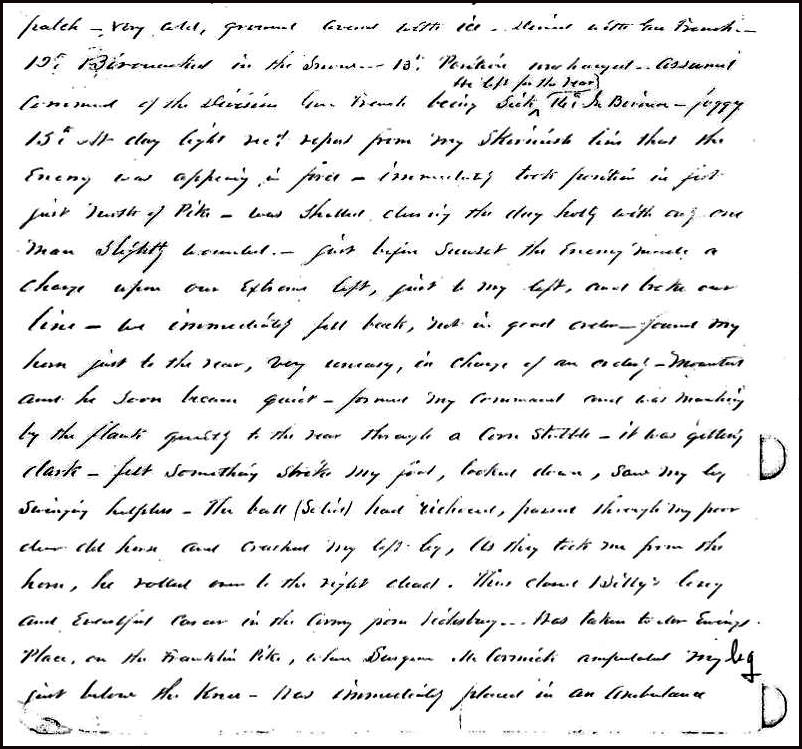 patch - very cold, ground covered with ice - dined with Gen French -
12th Bivouacked in the Snow - 13th Position unchanged - assumed
he left for the rear
Command of the Division Gen French being Sick 14th In Bivouac - foggy
15th At day light recd report from my Skirmish line that the
Enemy was appearing in force - immediately took position in
just South of Pike - was Shelled during the day hotly with only one
man Slightly wounded. - just before Sunset the Enemy made a
Charge upon our Extreme left, just to my left, and broke our
line - we immediately fell back, not in good order - found my
horse just to the rear, very uneasy, in charge of an orderly - Mounted
and he soon became quiet - formed my Command and was marching
by the flank quietly to the rear through a Corn Stubble - it was getting
dark - felt something strike my foot, looked down, saw my leg
Swinging helpless - The ball (Solid) had ricocheted, passed through my poor
dear old horse and crushed my left leg, As they took me from the
horse, he rolled over to the right dead. Thus closed Billy's long
and Eventful Career in the Army from Vicksburg - Was taken to Ewings
Place, on the Franklin Pike, where Surgeon McCormick amputated my leg
just below the Knee - Was immediately placed in an Ambulance
D
D